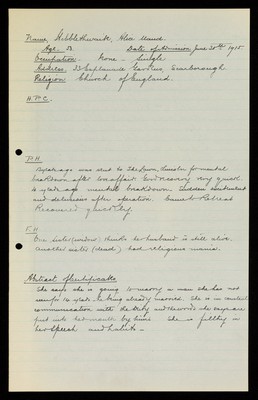 Name. Hebblethwaite, Alice Maud.
Age. 53. Date of Admission June 25th 1905
Occupation. None - Single
Address. 33 Esplanade Gardens, Scarborough
Religion. Church of England.
H.P.C.
P.H.
years ago was sent to The Lawn, Lincoln for mental
breakdown after love affair. Good recovery very quick.
14 years ago mental breakdown. Sudden excitement
and delusions after operation. Came to Retreat
Recovered quickly.
F.H.
One sister (widow) thinks her husband is still alive.
Another sister (dead) had religious mania.
Abstract of Certificate
She says she is going to marry a man she has not
seen for 14 years - he being already married. She is in mental
communication with the Deity and the words she says are
put into her mouth by him. She is filthy in
her speech and habits -